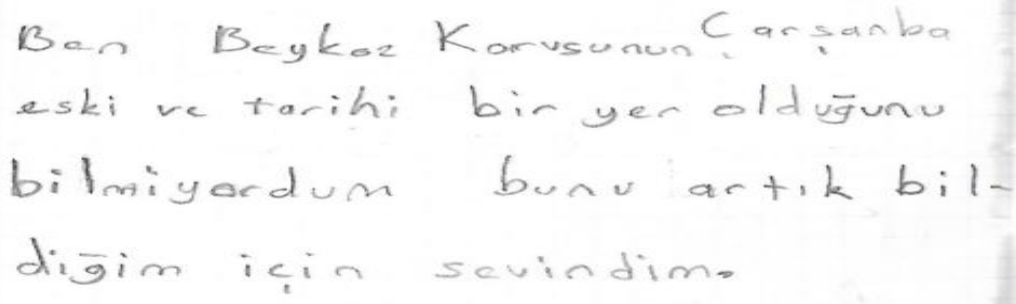 Ben Beykoz Korusunun Çarşanba
eski ve tarihi bir yer olduğunu
bilmiyordum bunu artık bil-
diğim için sevindim.